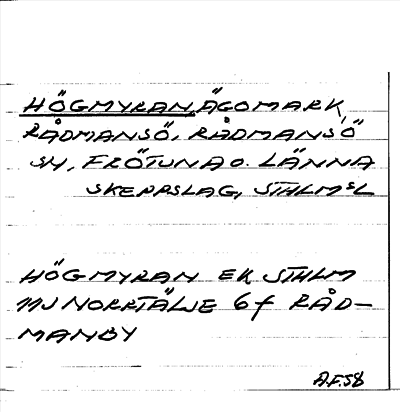 HÖGMYRAN, ÄGOMARK,
RÅDMANSÖ, RÅDMANSÖ
SN, FRÖTUNA O. LÄNNA
SKEPPSLAG, STHLMSL
HÖGMYRAN EK STHLM
11J NORRTÄLJE 6f RÅD-
MANBY
A.F.58